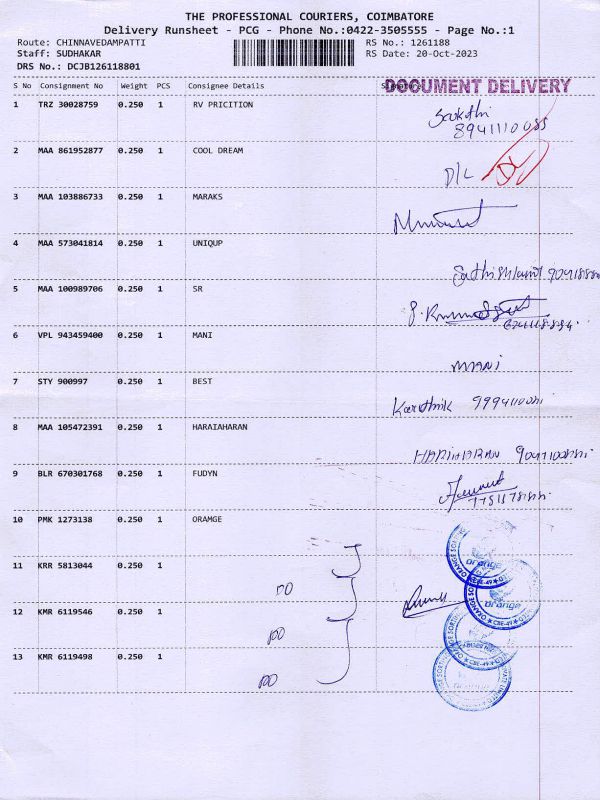 THE PROFESSIONAL COURIERS, COIMBATORE
Delivery Runsheet - PCG - Phone No.:0422-3505555 - Page No.:1
Route: CHINNAVEDAMPATTI RS No.: 1261188
Staff: SUDHAKAR RS Date: 20-Oct-2023
DRS No.: DCJB126118801
S No Consignment No Weight PCS Consignee Details DOCUMENT DELIVERY
1 TRZ 30028759 0.250 1 RV PRICITION
Sakthi
2 MAA 861952877 0.250 1 COOL DREAM
D/L
3 MAA 103886733 0.250 1 MARAKS
4 MAA 573041814 0.250 1 UNIQUP
5 MAA 100989706 0.250 1 SR
6 VPL 943459400 0.250 1 MANI
MANI
7 STY 900997 0.250 1 BEST
Karthik
8 MAA 105472391 0.250 1 HARAIAHARAN
HARIHARAN
9 BLR 670301768 0.250 1 FUDYN
10 PMK 1273138 0.250 1 ORAMGE
orange
11 KRR 5813044 0.250 1
DO
orange
12 KMR 6119546 0.250 1
DO
13 KMR 6119498 0.250 1
DO